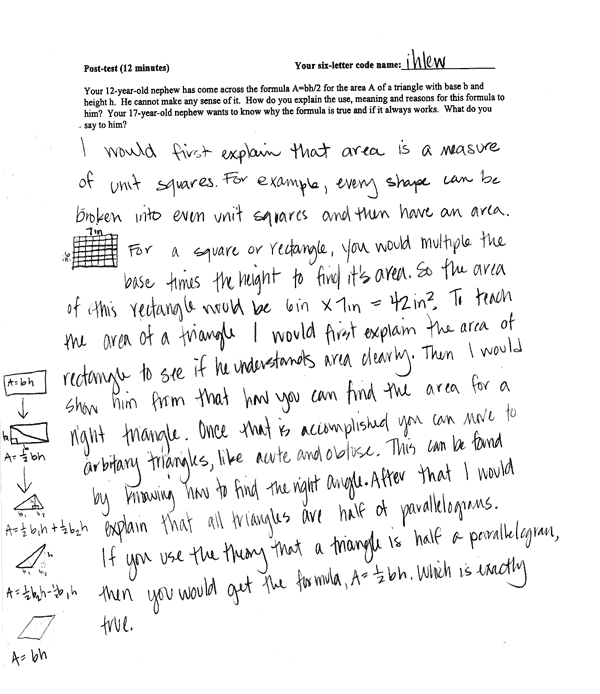 Post-test (12 minutes) Your six-letter code name: ihlew
Your 12-year-old nephew has come across the formula A=bh/2 for the area A of a triangle with base b and
height h. He cannot make any sense of it. How do you explain the use, meaning and reasons for this formula to
him? Your 17-year-old nephew wants to know why the formula is true and if it always works. What do you
say to him?
I would first explain that area is a measure
of unit squares. For example, every shape can be
broken into even unit squares and then have an area.
7in
6in
For a square or rectangle, you would multiple the
base times the height to find it's area. So the area
of this rectangle would be 6in x 7in = 42in². To teach
the area of a triangle I would first explain the area of
rectangle to see if he understands area clearly. Then I would
show him from that how you can find the area for a
right triangle. Once that is accomplished you can move to
arbitary triangles, like acute and obtuse. This can be found
by knowing how to find the right angle. After that I would
explain that all triangles are half of parallelograms.
If you use the theory that a triangle is half a parallelogram,
then you would get the formula, A=½bh. Which is exactly
true.
A=bh
h
b
A=½bh
h
b₁ b₂
A=½b₁h+½b₂h
h
b₁ b₂
A=½b₂h-½b₁h
A=bh